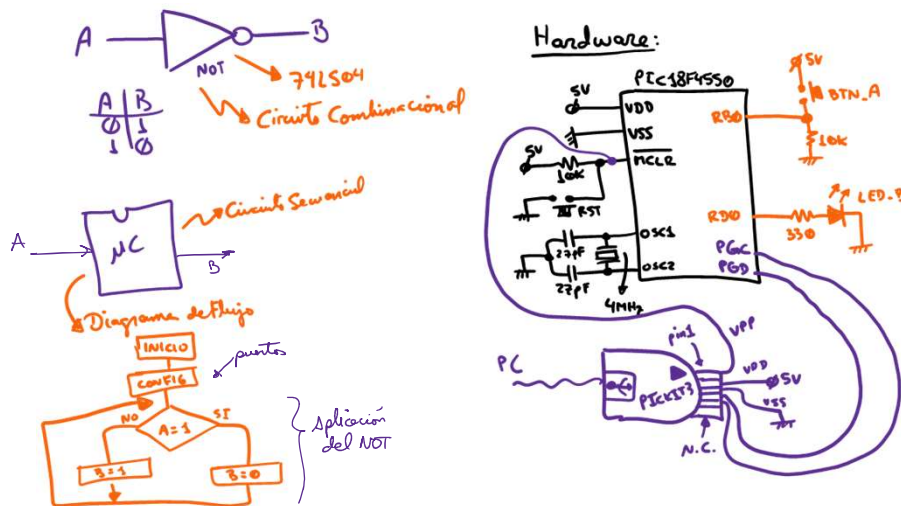 A
B
NOT
74LS04
Circuito Combinacional
A B
0 1
1 0
Circuito Secuencial
A
μC
B
Diagrama de Flujo
INICIO
CONFIG
puertos
NO
SI
A=1
B=1
B=0
aplicación
del NOT
Hardware:
PIC18F4550
5V
VDD
VSS
5V
MCLR
10K
RST
OSC1
27pF
OSC2
27pF
4MHz
RB0
5V
BTN_A
10K
RD0
330
LED_B
PGC
PGD
PC
pin1
VPP
PICKIT3
VDD
5V
VSS
N.C.